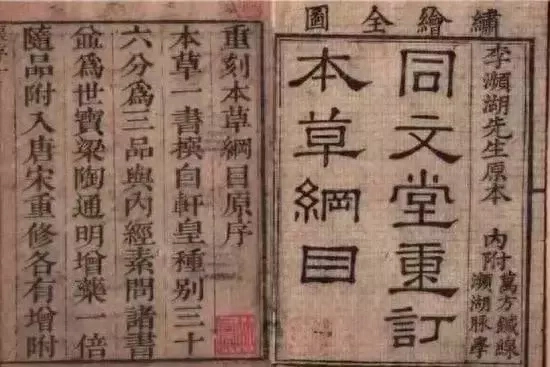 繡繪全圖
李瀕湖先生原本
內附萬方鍼線
瀕湖脉學
同文堂重訂
本草綱目
重刻本草綱目原序
本草一書撰自軒皇種別三十
六分爲三品與內經素問諸書
並爲世寶梁陶通明增藥一倍
隨品附入唐宋重修各有增附